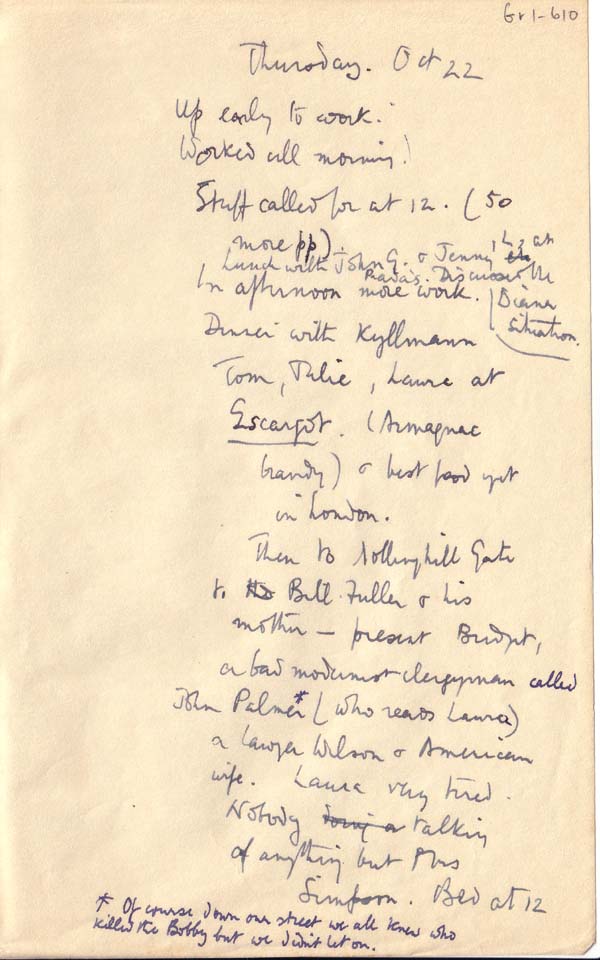 Gr1-610
Thursday. Oct 22
Up early to work.
Worked all morning!
Stuff called for at 12. (50
more pp).
Lunch with John G. & Jenny at
Prada's. Discussed the
In afternoon more work. Diana
situation.
Dinner with Kyllmann
Tom, Julie, Laura at
Escargot. (Armagnac
brandy) & best food yet
in London.
Then to Nottinghill Gate
to Bill Fuller & his
mother — present Bridget,
a bad modernist clergyman called
John Palmer* (who reads Laura)
a lawyer Wilson & American
wife. Laura very tired.
Nobody talking
of anything but Mrs
Simpson. Bed at 12
* Of course down our street we all knew who
killed the Bobby but we didn't let on.